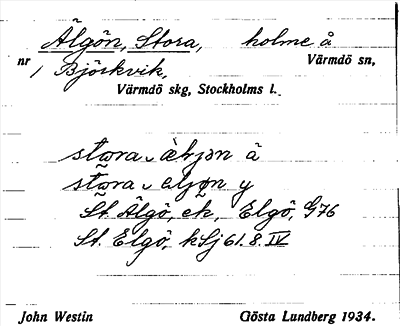 Älgön, Stora, holme å
nr 1 Björkvik, Värmdö sn,
Värmdö skg, Stockholms l.
stora å
stora y
St. Älgö, ek, Elgö, G76
St. Elgö, kSj 61.8. IV
John Westin Gösta Lundberg 1934.